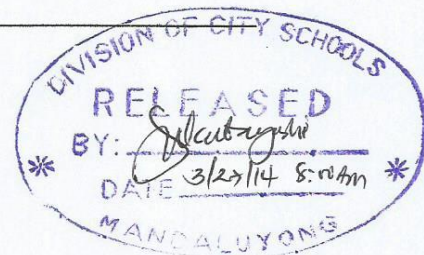 DIVISION OF CITY SCHOOLS
RELEASED
BY:
DATE 3/27/14 8:00 AM
MANDALUYONG